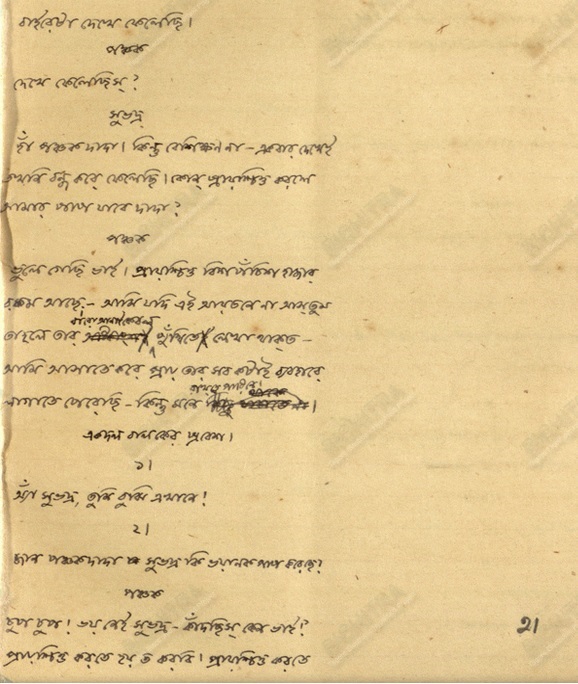 বাইরেটা দেখে ফেলেছি।
পঞ্চক
দেখে ফেলেছিস্?
সুভদ্র
হাঁ পঞ্চকদাদা। কিন্তু বেশিক্ষণ না – একবার দেখেই
তখনি বন্ধ করে ফেলেছি। কোন্ প্রায়শ্চিত্ত করলে
আমার পাপ যাবে দাদা?
পঞ্চক
ভুলে গেছি ভাই। প্রায়শ্চিত্ত বিশ পঁচিশ হাজার
রকম আছে – আমি যদি এই আয়তনে না আস্তুম
তাহলে তার বারোআনাই কেবল পুঁথিতে লেখা থাকত –
আমি আসার পরে প্রায় তার সব কটাই ব্যবহারে
লাগাতে পেরেছি – কিন্তু মনে রাখতে পারিনি।
একদল বালকের প্রবেশ।
১।
অ্যাঁ সুভদ্র, তুমি বুঝি এখানে!
২।
জান পঞ্চকদাদা সুভদ্র কি ভয়ানক পাপ করেছে?
পঞ্চক
চুপ চুপ! ভয় নেই সুভদ্র – কাঁদছিস্ কেন ভাই?
প্রায়শ্চিত্ত করতে হয় ত করবি। প্রায়শ্চিত্ত করতে
21